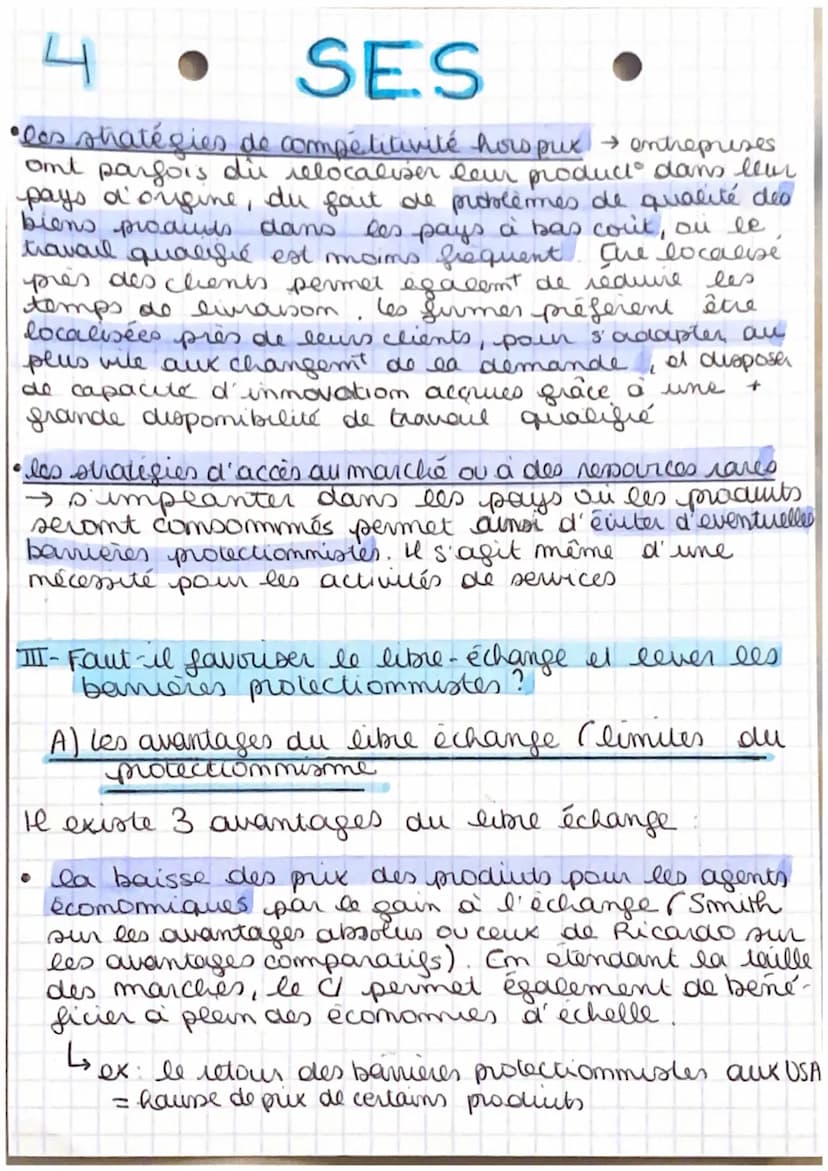 4 • SES •
• les stratégies de compétitivité hors prix → entreprises
ont parfois dû relocaliser leur product° dans leur
pays d'origine, du fait de problèmes de qualité des
biens produits dans les pays à bas coût, où le
travail qualifié est moins fréquent. Être localisé
près des clients permet égalemt de réduire les
temps de livraison. Les firmes préfèrent être
localisées près de leurs clients, pour s'adapter au
plus vite aux changemt de la demande, et disposer
de capacité d'innovation accrues grâce à une +
grande disponibilité de travail qualifié
• les stratégies d'accès au marché ou à des ressources rares
→ s'implanter dans les pays où les produits
seront consommés permet ainsi d'éviter d'éventuelles
barrières protectionnistes. Il s'agit même d'une
nécessité pour les activités de services
III- Faut-il favoriser le libre-échange et lever les
barrières protectionnistes ?
A) Les avantages du libre échange (limites du
protectionnisme
Il existe 3 avantages du libre échange :
• la baisse des prix des produits pour les agents
économiques par le gain à l'échange (Smith
sur les avantages absolus ou ceux de Ricardo sur
les avantages comparatifs). En étendant la taille
des marchés, le CI permet également de béné-
ficier à plein des économies d'échelle.
↳ ex : le retour des barrières protectionnistes aux USA
= hausse de prix de certains produits